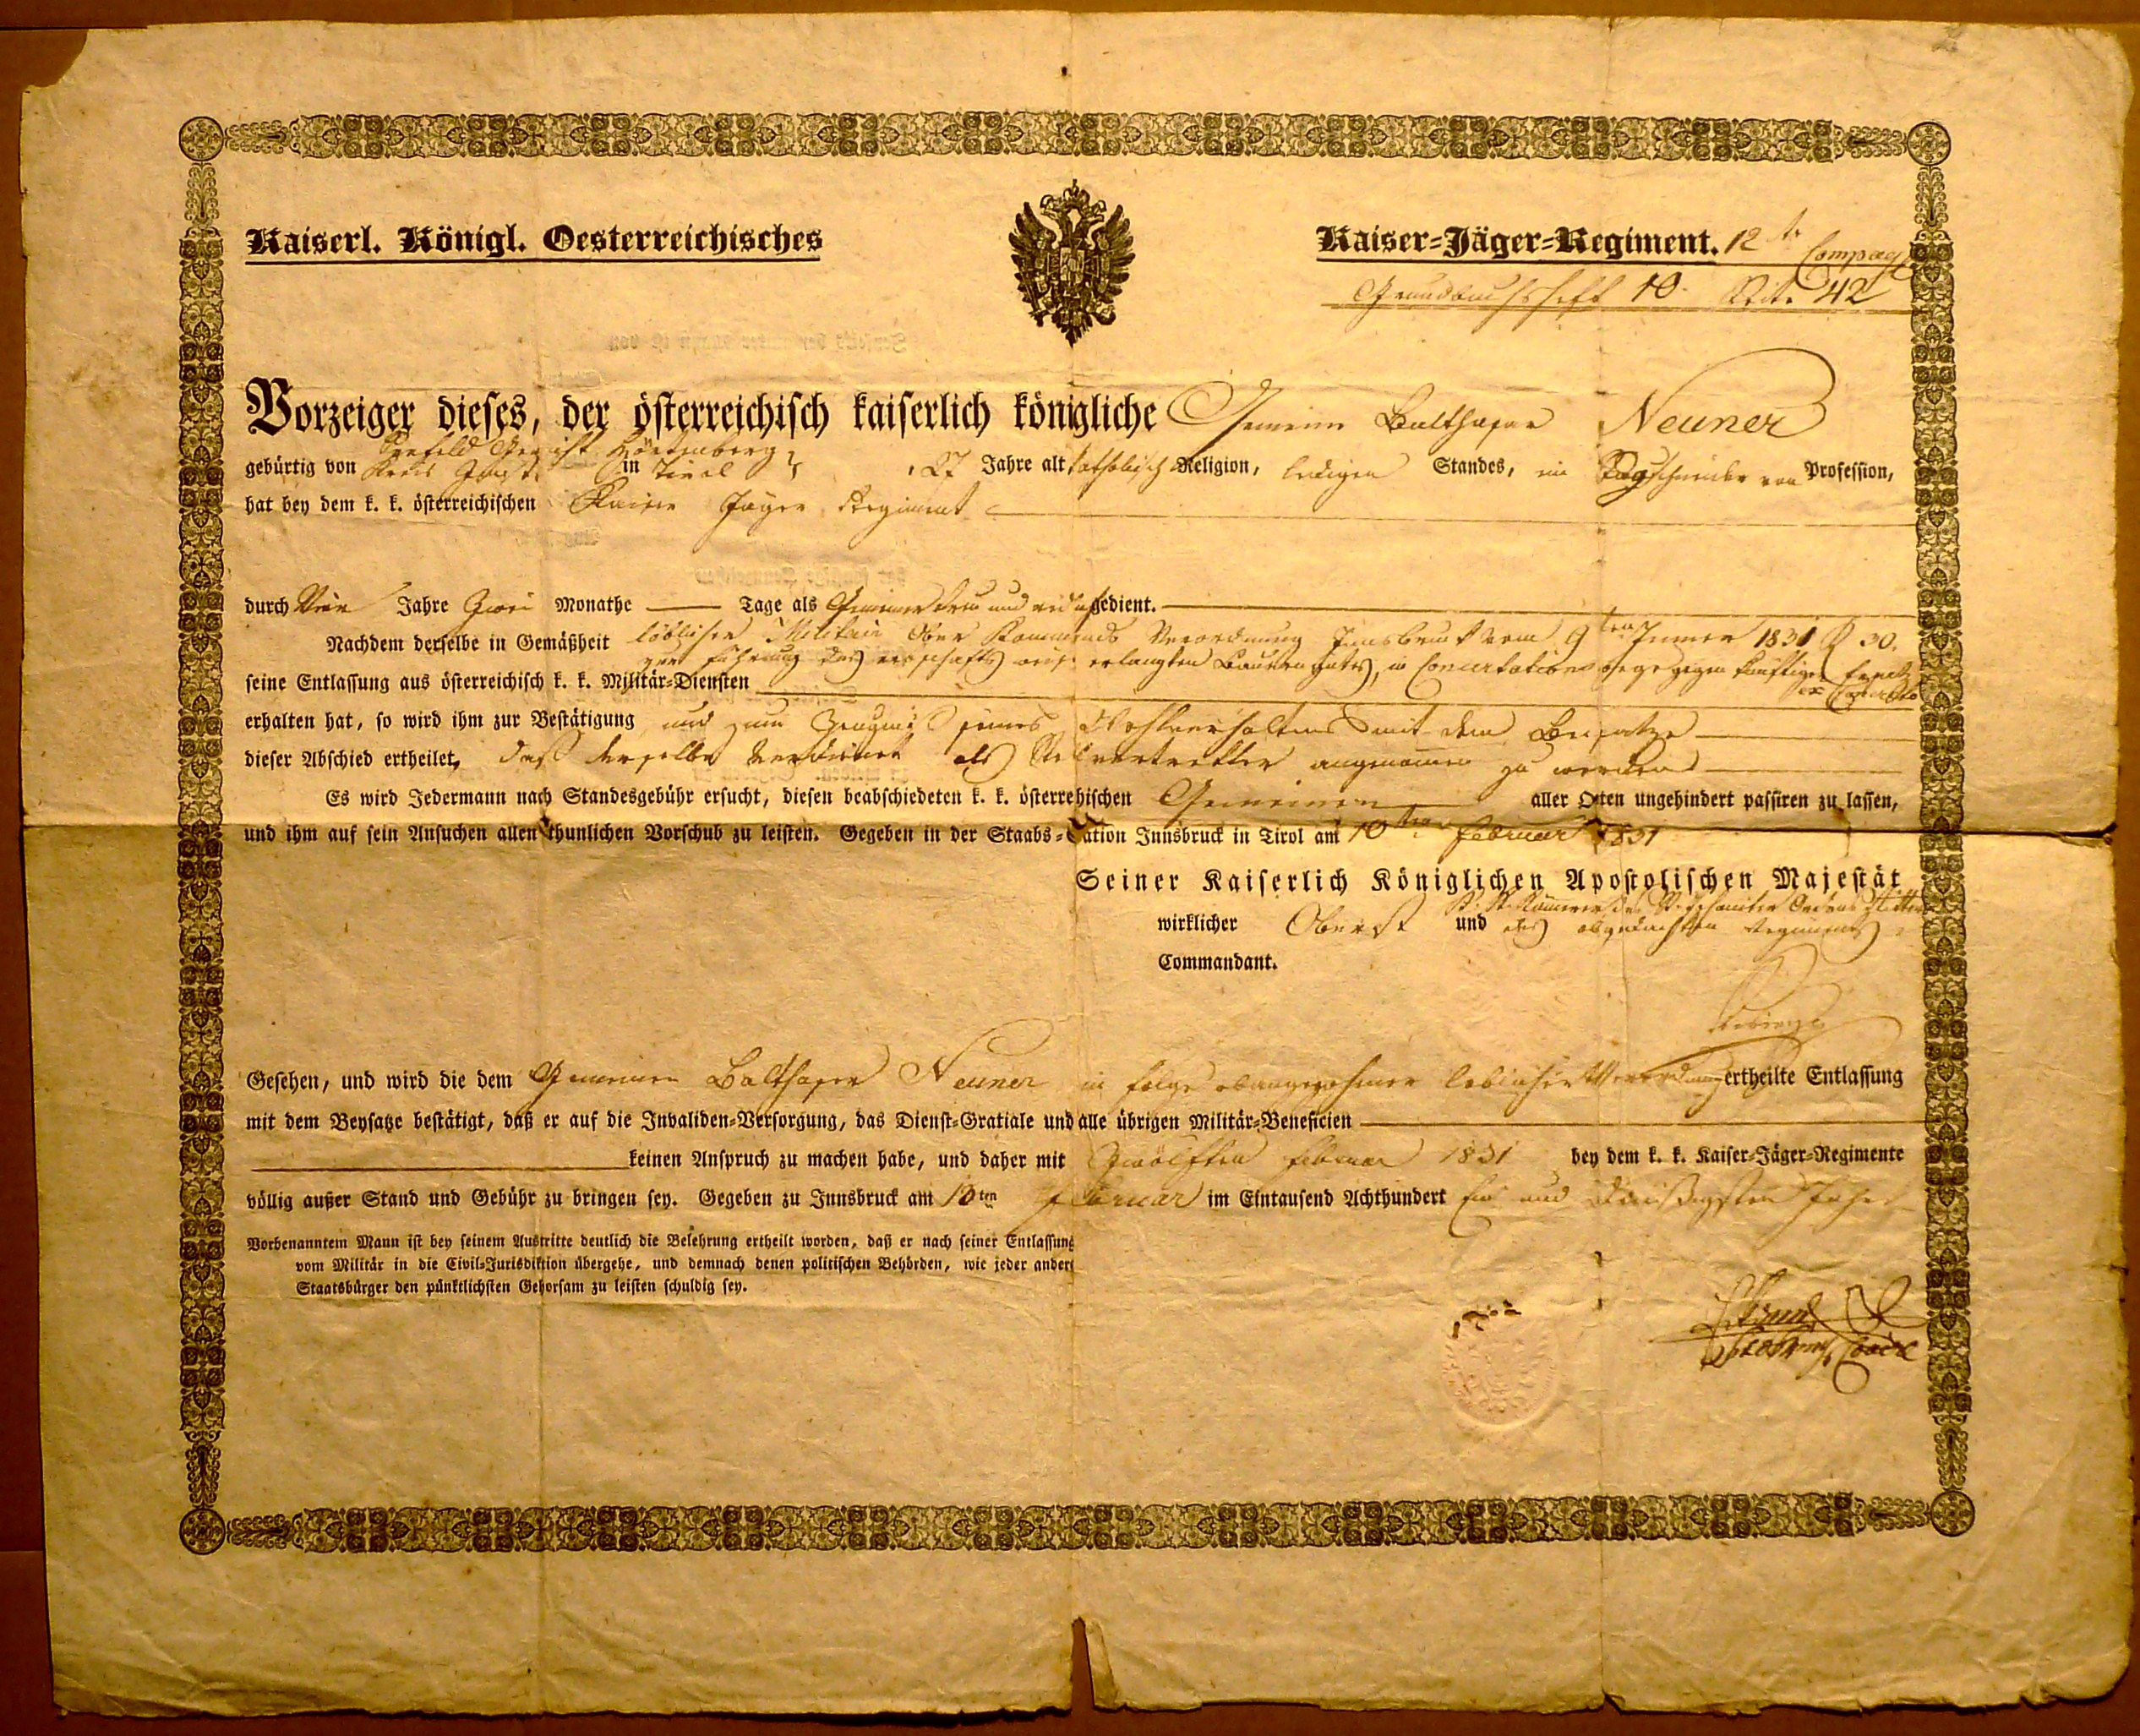 Kaiserl. Königl. Oesterreichisches
Kaiser=Jäger=Regiment. 12te Compag
Grundbuchsheft 10. 42
Vorzeiger dieses, der österreichisch kaiserlich königliche Gemeine Balthasar Neuner
Seefeld Gericht Hörtenberg
gebürtig von Kreis Imst in Tirol, 27 Jahre alt katholisch Religion, ledigen Standes, ein von Profession,
hat bey dem k. k. österreichischen Kaiser Jäger Regiment
durch Vier Jahre Zwei Monathe — Tage als Gemeiner treu und redlich gedient.
Nachdem derselbe in Gemäßheit löblicher Militair Ober Kommando Verordnung Innsbruck vom 9ten Jenner 1831 R 30.
zur Führung des erlangten Bauerngutes, in Concertations wege gegen künftigen
seine Entlassung aus österreichisch k. k. Militär=Diensten
erhalten hat, so wird ihm zur Bestätigung und zum Zeugniß seines Wohlverhaltens mit dem Beisatze
dieser Abschied ertheilet, daß derselbe verdienet als Stellvertretter angenommen zu werden
Es wird Jedermann nach Standesgebühr ersucht, diesen beabschiedeten k. k. österrehischen Gemeinen aller Orten ungehindert passiren zu lassen,
und ihm auf sein Ansuchen allen thunlichen Vorschub zu leisten. Gegeben in der Staabs=Station Innsbruck in Tirol am 10ten Februar 1831
Seiner Kaiserlich Königlichen Apostolischen Majestät
K. K. Kämmerer des St. Johanniter Ordens Ritter
wirklicher Oberst und des obgedachten Regiments
Commandant.
Gesehen, und wird die dem Gemeinen Balthasar Neuner in Folge obangezogener löblicher Verordnung ertheilte Entlassung
mit dem Beysatze bestätigt, daß er auf die Invaliden=Versorgung, das Dienst=Gratiale und alle übrigen Militär=Beneficien
keinen Anspruch zu machen habe, und daher mit Zwölften Februar 1831 bey dem k. k. Kaiser=Jäger=Regimente
völlig außer Stand und Gebühr zu bringen sey. Gegeben zu Innsbruck am 10ten Februar im Eintausend Achthundert Ein und Dreißigsten Jahre
Vorbenanntem Mann ist bey seinem Austritte deutlich die Belehrung ertheilt worden, daß er nach seiner Entlassung
vom Militär in die Civil=Jurisdiktion übergehe, und demnach denen politischen Behörden, wie jeder andere
Staatsbürger den pünktlichsten Gehorsam zu leisten schuldig sey.